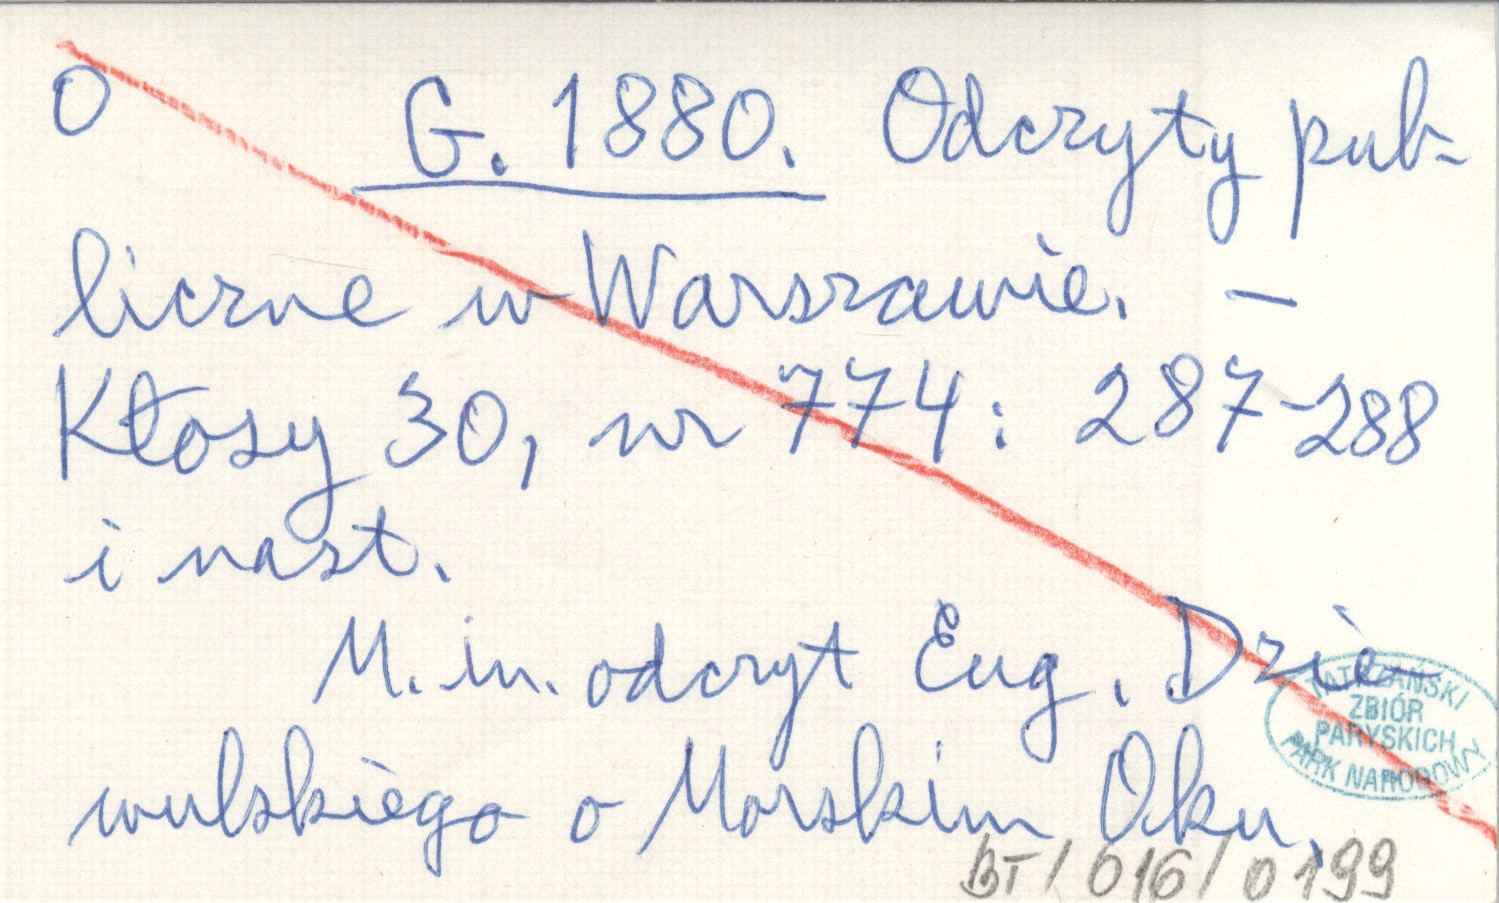 O G. 1880. Odczyty pub-
liczne w Warszawie. —
Kłosy 30, nr 774: 287-288
i nast.
M. in. odczyt Eug. Dzie-
wulskiego o Morskim Oku.
TATRZAŃSKI
ZBIÓR
PARYSKICH
PARK NARODOWY
BT/016/0199